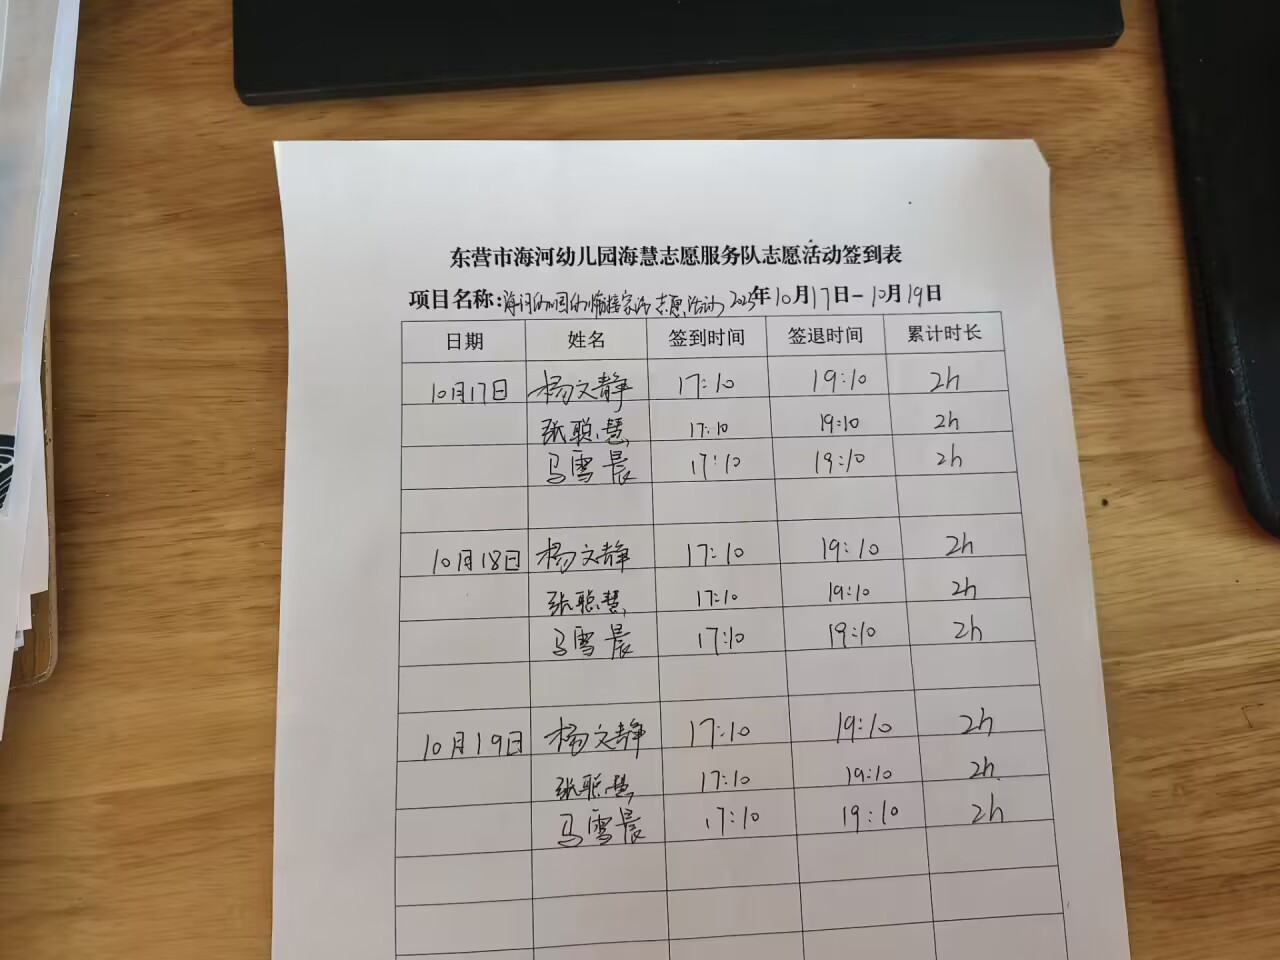 东营市海河幼儿园海慧志愿服务队志愿活动签到表
项目名称:海河幼儿园 志愿活动 2025年10月17日-10月19日
日期 姓名 签到时间 签退时间 累计时长
10月17日 杨文静 17:10 19:10 2h
张聪慧 17:10 19:10 2h
马雪晨 17:10 19:10 2h
10月18日 杨文静 17:10 19:10 2h
张聪慧 17:10 19:10 2h
马雪晨 17:10 19:10 2h
10月19日 杨文静 17:10 19:10 2h
张聪慧 17:10 19:10 2h
马雪晨 17:10 19:10 2h